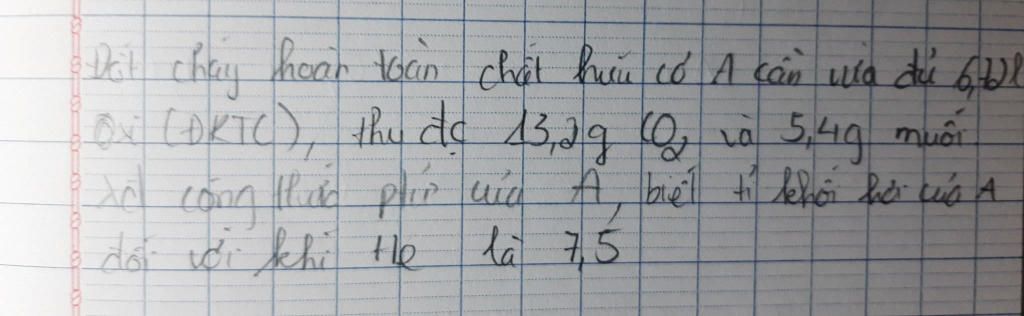 Đốt cháy hoàn toàn chất hữu cơ A cần vừa đủ 6,72l
Oxi (ĐKTC), thu đc 13,2g CO2 và 5,4g muối
công thức của A, biết tỉ khối hơi của A
đối với khí He là 7,5